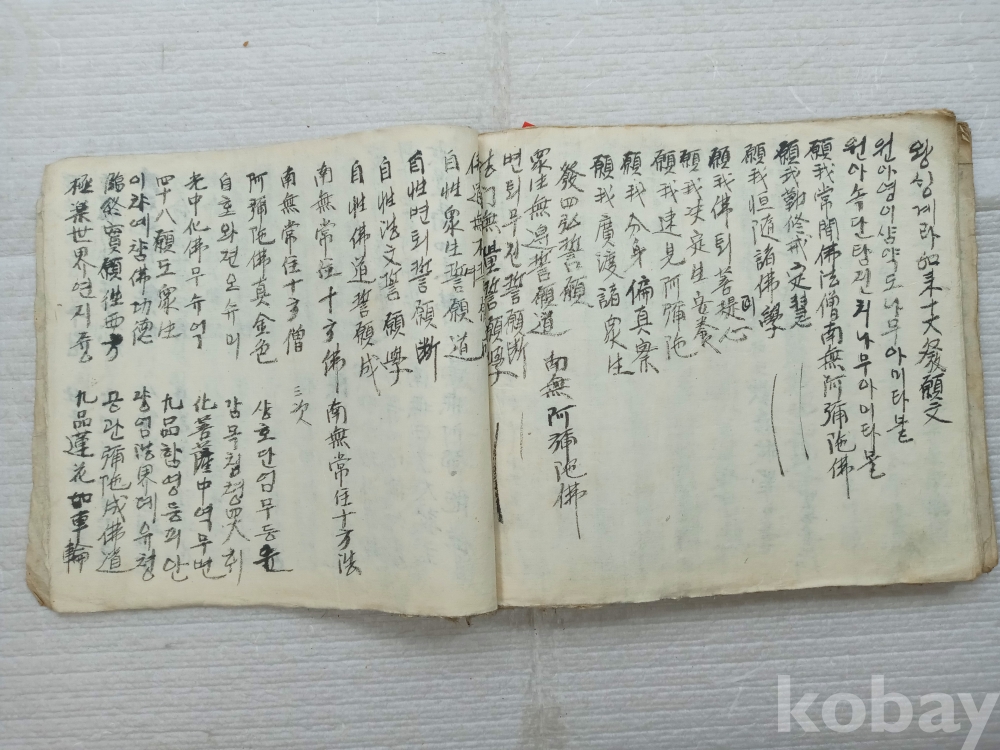 왕싱게라 如来十大發願文
원아영이삼악도나무아미타불
원아속단탐진치나무아미타불
願我常聞佛法僧南無阿彌陀佛
願我勤修戒文慧
願我恒隨諸佛學
願我佛퇴菩提心
願我决定生安養
願我速見阿彌陀
願我分身徧真察
願我廣渡諸衆生
發四弘誓願
衆生無邊誓願道 南無阿彌陀佛
번퇴무진誓願断
法門無量誓願學
自性衆生誓願道
自性번퇴誓願断
自性法文誓願學
自性佛道誓願成
南無常住十方佛 南無常住十方法
南無常住十方僧 三次
阿彌陀佛真金色 상호단엄무등윤
白호와견오슈미 감목청졍四大히
光中化佛무슈억 化菩薩中역무변
四十八願도衆生 九品함영등피안
이차예참佛功德 장엄法界데유정
臨終實願徃西方 공관彌陀成佛道
極楽世界연지즁 九品蓮花如車輪
kobay